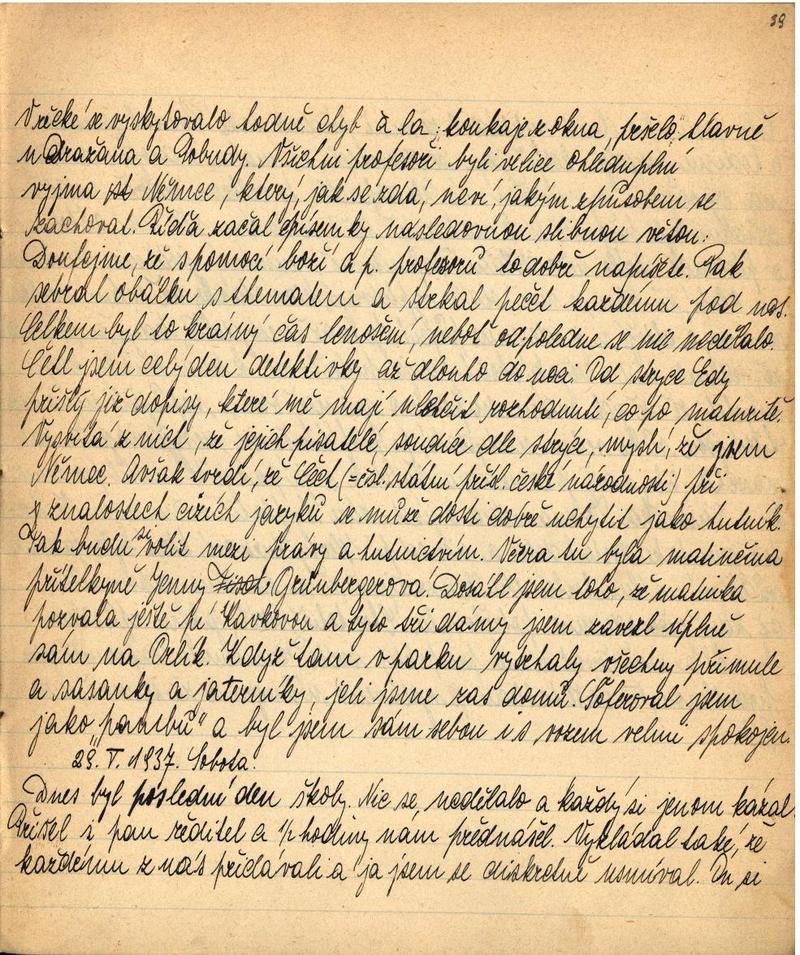 39
V řecké se vyskytovalo hodně chyb à la: „koukaje z okna, pršelo", hlavně
u Dražana a Lobudy. Všichni profesoři byli velice ohleduplní
vyjma Němce, který, jak se zdá, neví, jakým způsobem se
zachovat. Říďa začal písemky následovnou slibnou větou:
Doufejme, že s pomocí boží a p. profesorů to dobře napíšete. Pak
sebral obálku s thematem a strkal pečeť každému pod nos.
Celkem byl to krásný čas lenošení, neboť odpoledne se nic nedělalo.
Četl jsem celý den detektivky až dlouho do noci. Od strýce Edy
přišly již dopisy, které mě mají ulehčit rozhodnutí, co po maturitě.
Vysvítá z nich, že jejich pisatelé, soudíce dle strýce, myslí, že jsem
Němec. Avšak tvrdí, že Čech (= čsl. státní přísl. české národnosti) při
znalostech cizích jazyků se může dosti dobře uchytit jako hutník.
Tak budu volit mezi právy a hutnictvím. Včera tu byla matinčina
přítelkyně Jenny Grünbergerová. Dosáhl jsem toho, že matinka
pozvala ještě pí Kavkovou a tyto tři dámy jsem zavezl úplně
sám na Orlík. Když tam v parku vytrhaly všechny primule
a sasanky a jaterníky, jeli jsme zas domů. Šoféroval jsem
jako „pambů" a byl jsem sám sebou i s vozem velmi spokojen.
29. V. 1937. Sobota.
Dnes byl poslední den školy. Nic se nedělalo a každý si jenom kázal.
Přišel i pan ředitel a ½ hodiny nám přednášel. Vykládal také, že
každému z nás přidávali a já jsem se diskretně usmíval. On si